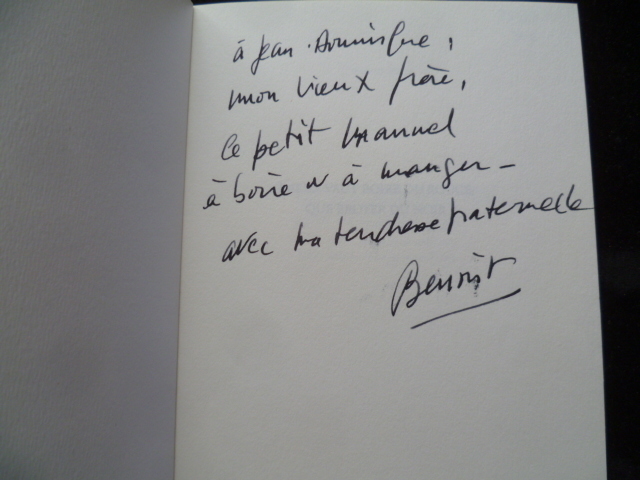 à Jean-Dominique,
mon vieux frère,
ce petit manuel
à boire et à manger –
avec ma tendresse fraternelle
Benoist